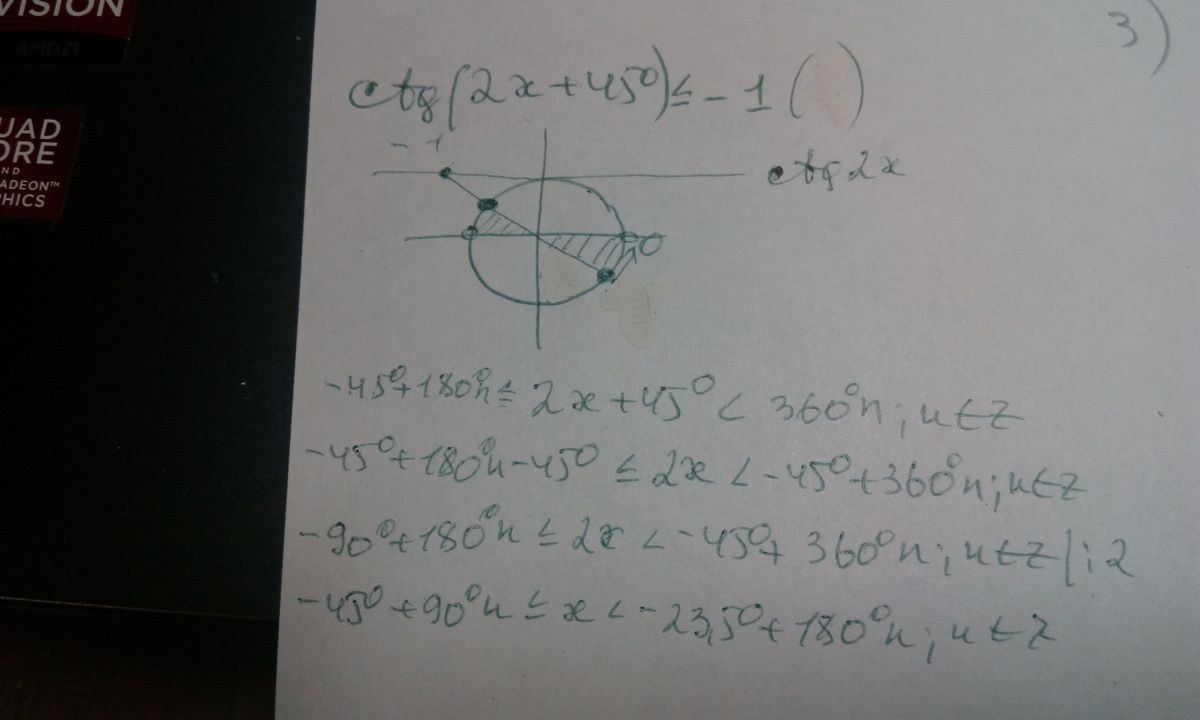 VISION
AMD
UAD
ORE
ND
ADEON™
PHICS
3)
ctg(2x+45°)≤-1 ( )
-1
ctg2x
0
-45°+180°n≤ 2x+45° < 360°n; n∈Z
-45°+180°n-45° ≤ 2x < -45°+360°n; n∈Z
-90°+180°n ≤ 2x < -45°+ 360°n; n∈Z |:2
-45°+90°n ≤ x < -23,5°+180°n; n∈Z